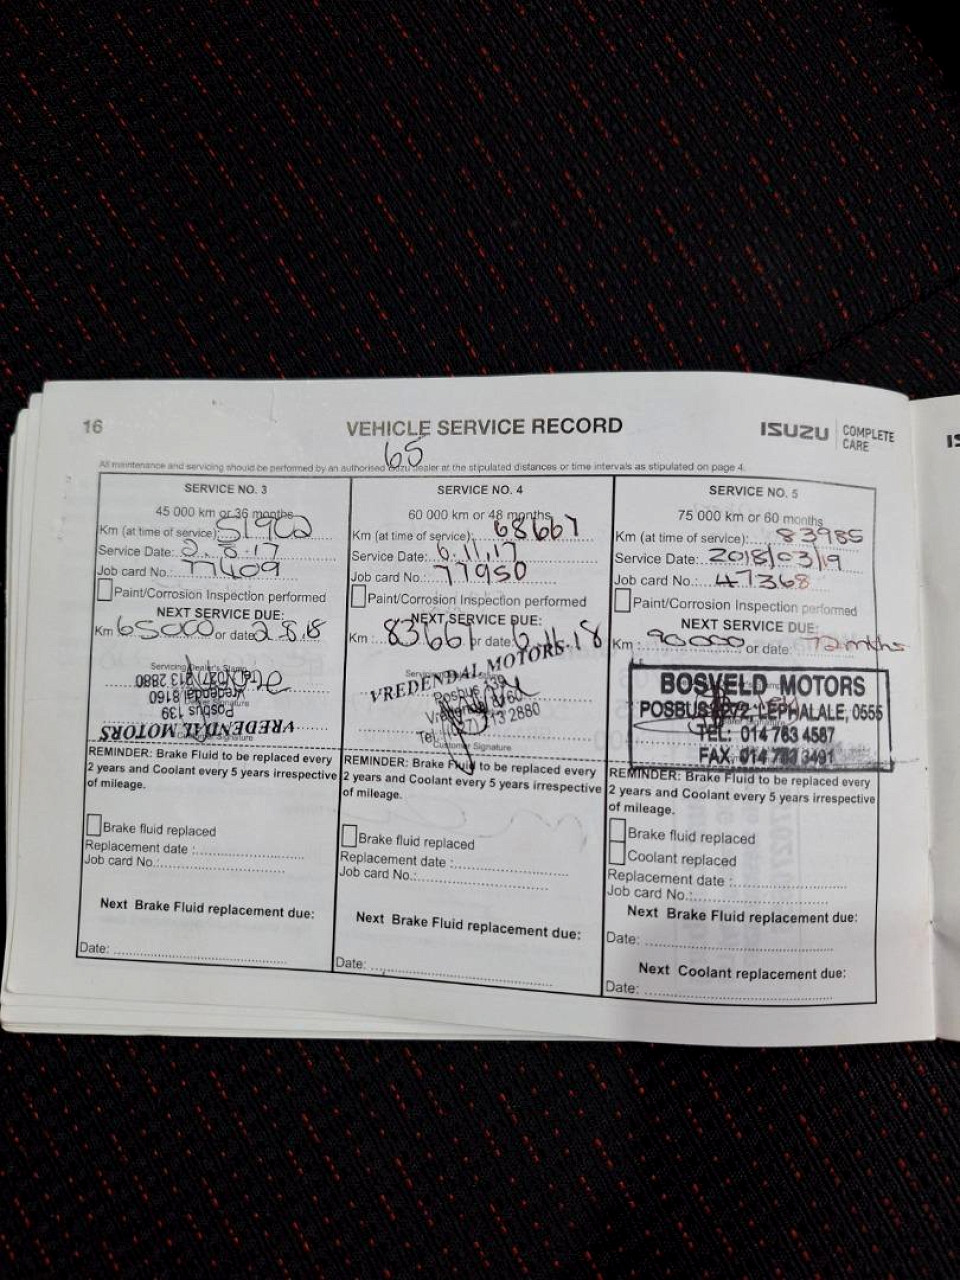 16
VEHICLE SERVICE RECORD
ISUZU COMPLETE CARE
65
All maintenance and servicing should be performed by an authorised Isuzu dealer at the stipulated distances or time intervals as stipulated on page 4.
SERVICE NO. 3
45 000 km or 36 months
Km (at time of service): 51902
Service Date: 2.8.17
Job card No.: 77409
Paint/Corrosion Inspection performed
NEXT SERVICE DUE:
Km 65000 or date 2.8.18
Servicing Dealer's Stamp
VREDENDAL MOTORS
Posbus 139
Vredendal 8160
213 2880
Customer Signature
REMINDER: Brake Fluid to be replaced every
2 years and Coolant every 5 years irrespective
of mileage.
Brake fluid replaced
Replacement date :
Job card No.:
Next Brake Fluid replacement due:
Date:
SERVICE NO. 4
60 000 km or 48 months
Km (at time of service): 68667
Service Date: 6.11.17
Job card No.: 77950
Paint/Corrosion Inspection performed
NEXT SERVICE DUE:
Km : 83667 or date: 6.11.18
VREDENDAL MOTORS
Posbus 139
8160
Tel. 213 2880
Customer Signature
REMINDER: Brake Fluid to be replaced every
2 years and Coolant every 5 years irrespective
of mileage.
Brake fluid replaced
Replacement date :
Job card No.:
Next Brake Fluid replacement due:
Date:
SERVICE NO. 5
75 000 km or 60 months
Km (at time of service): 83985
Service Date: 2018/03/19
Job card No.: 47368
Paint/Corrosion Inspection performed
NEXT SERVICE DUE:
Km : 90000 or date: 72mths
BOSVELD MOTORS
LEPHALALE, 0555
TEL: 014 763 4587
FAX. 014 763 3491
REMINDER: Brake Fluid to be replaced every
2 years and Coolant every 5 years irrespective
of mileage.
Brake fluid replaced
Coolant replaced
Replacement date :
Job card No.:
Next Brake Fluid replacement due:
Date:
Next Coolant replacement due:
Date: